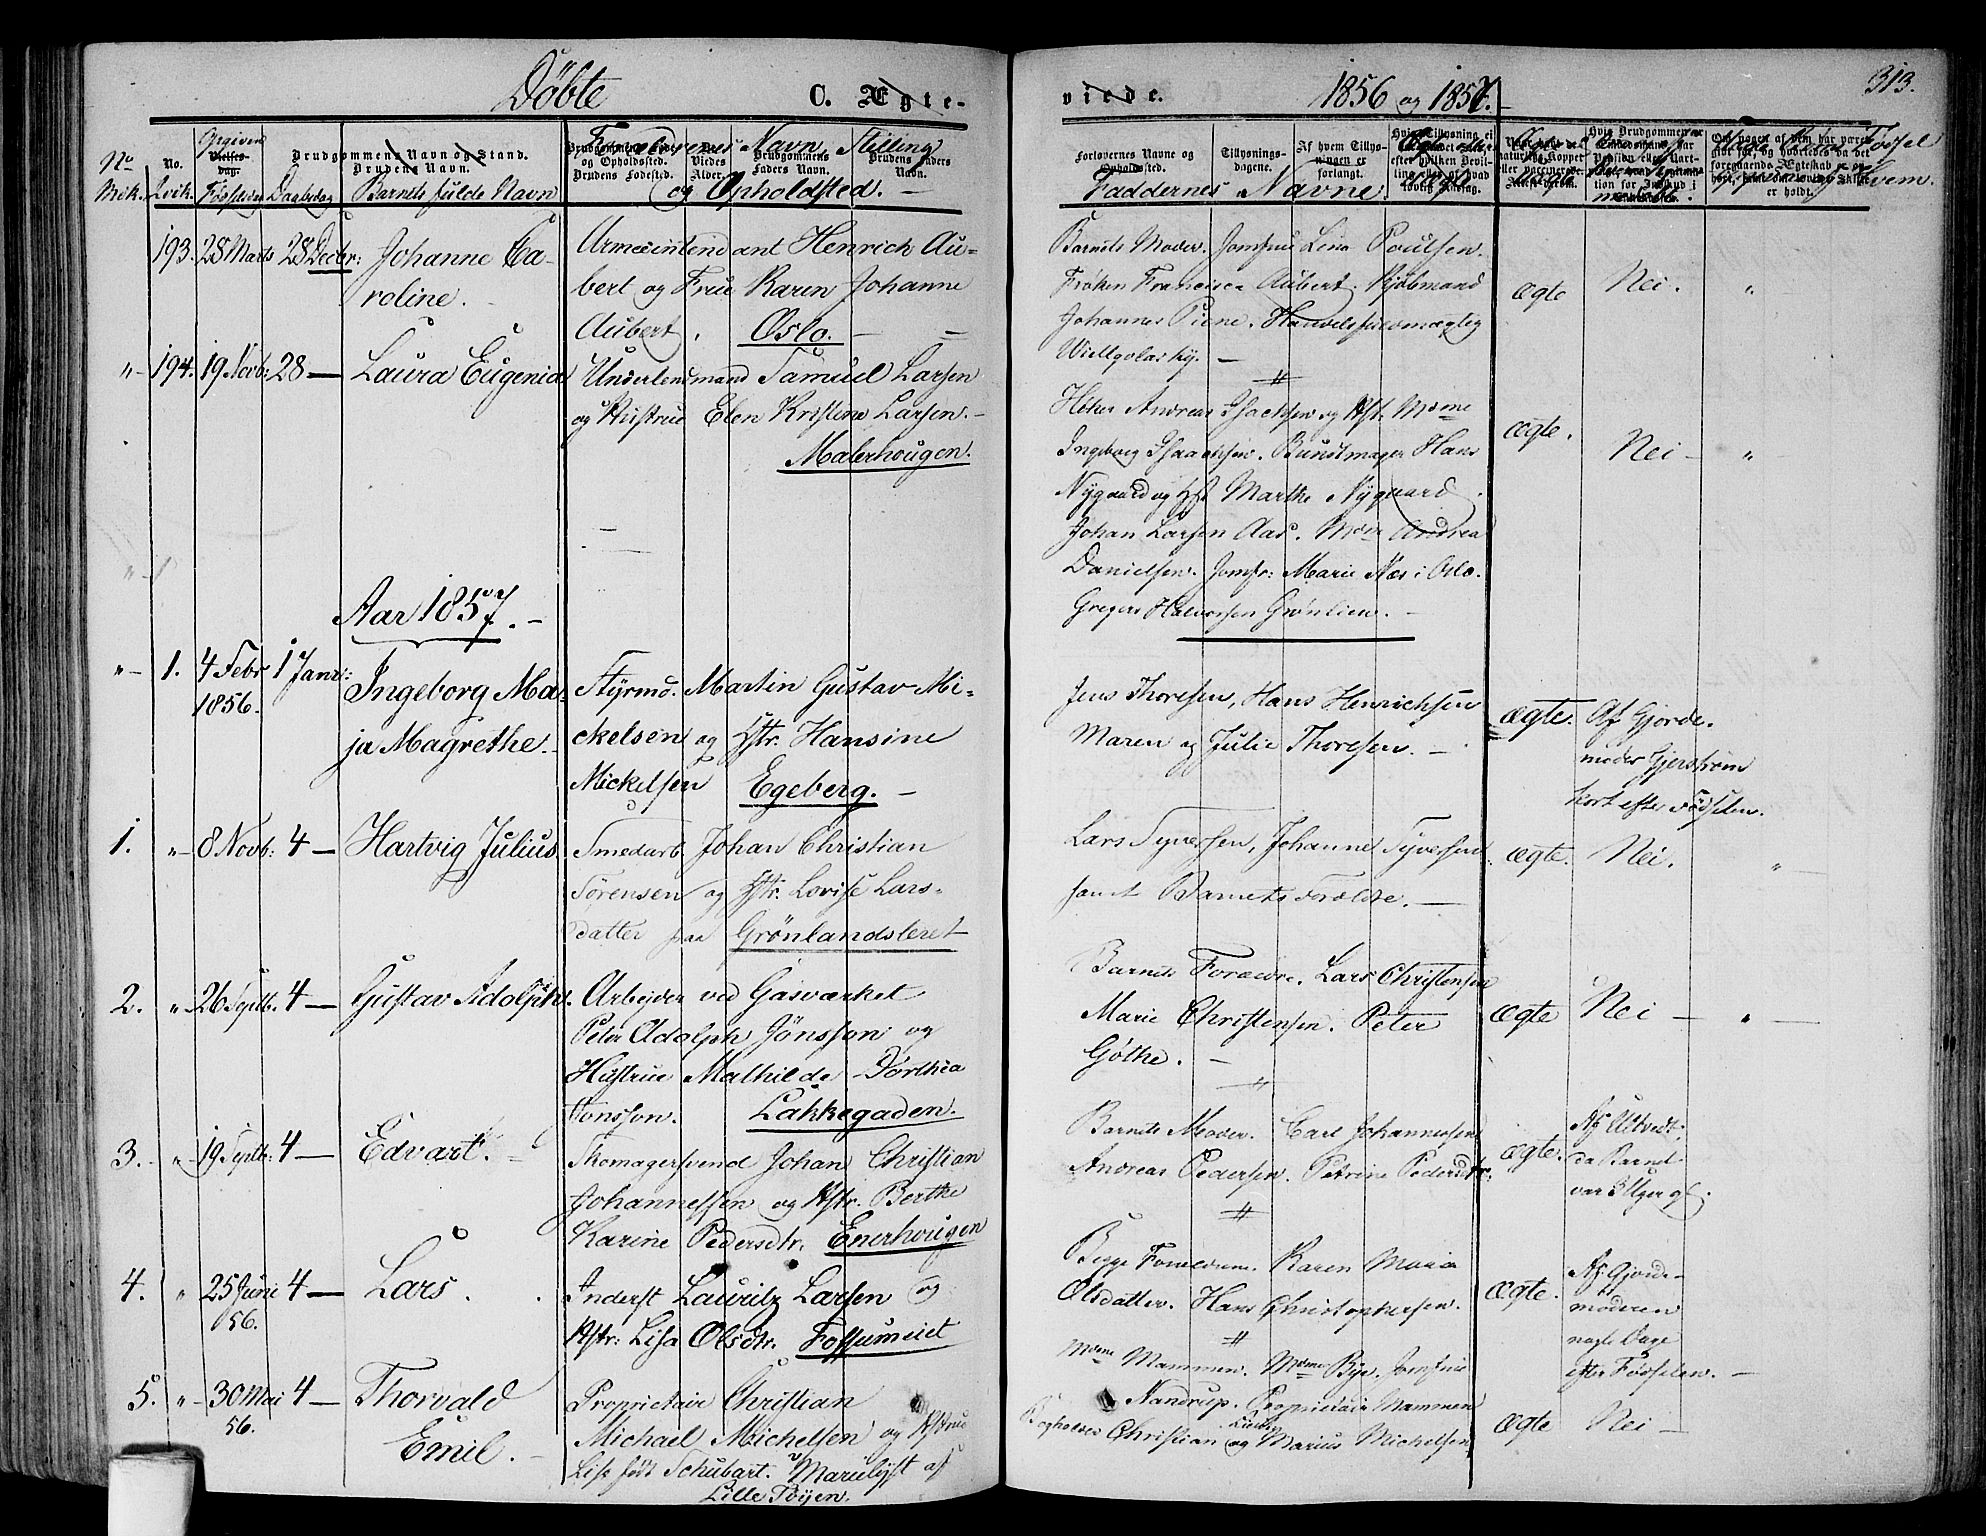 Döbte C. Ægte-
viede. 1856 og 1857. 313.
No Mök. No. Qvik. Opgiven Fødselsdag Daabsdag Barnets fulde Navn Forældrenes Navn, Stilling og Opholdsted. Faddernes Navne
193. 28 Marts 28 Decbr: Johanne Ca-
roline.
Armeeintendant Henrich Au-
bert og Frue Karen Johanne
Aubert, Oslo.
Barnets Moder. Jomfru Lina Poulsen.
Frøken Francisca Aubert. Kjöbmand
Johannes Piene. Handelsfuldmægtig
ægte Nei. "
" 194. 19 Novb: 28 — Laura Eugenia
Underlendsmand Samuel Larsen
og Hustrue Elen Kristine Larsen.
Malerhougen.
Höker Andreas Isachsen og Hst. Mdme
Ingeborg Isaachsen. Buntmager Hans
Nygaard og Hst Marthe Nygaard.
Johan Larsen Aas. Mdm Andrea
Danielsen. Jomfr: Marie Næs i Oslo.
Gregers Halvorsen Grönlien. —
ægte. Nei — "
Aar 1857. —
" 1. 4 Febr 1 Janr: Ingeborg Ma-
1856. ja Magrethe.
Styrmd. Martin Gustav Mi-
ckelsen og Hstr. Hansine
Mickelsen Egeberg. —
Jens Thoresen, Hans Henrichsen
Maren og Julie Thoresen. —
ægte. Af Gjorde-
moder Gjerstrøm
kort efter Födselen.
1. " 8 Novb: 4 — Hartvig Julius
Smedarb. Johan Christian
Sörensen og Hstr. Lovise Lars-
datter paa Grönlandsleret
Lars Syversen, Johanne Syversen
samt Barnets Forældre. —
ægte. Nei. "
2. " 26 Septb. 4 — Gustav Adolph.
Arbeider ved Gasværket
Peter Adolph Jönsson og
Hustrue Mathilde Dorthea
Jonsson. Lakkegaden.
Barnets Forældre. Lars Christensen
Marie Christensen. Peter
Göthe. —
ægte Nei — " —
3. " 19 Septb: 4 — Edvart.
Skomagersvend Johan Christian
Johannessen og Hstr. Berthe
Karine Pedersdtr. Enerhougen
Barnets Moder. Carl Johannessen
Andreas Pedersen. Petrine Pedersdtr:
ægte. Af Altvedt,
da Barnet
var 3 Uger gl.
4. " 25 Juni 4 — Lars.
56.
Inderst Lauritz Larsen og
Hstr: Lisa Olsdtr. Fossumeiet
Begge Forældrene. Karen Maria
Olsdatter. Hans Christophersen.
ægte. Af Gjorde-
moderen
nogle Dage
efter Födselen. —
5. " 30 Mai 4 — Thorvald
56. Emil. —
Proprietair Christian
Michael Michelsen og Hstrue
Lise födt Schubart. Marielyst af
Lille Töyen.
Mdme Mammen. Mdme Bye. Jomfrue
Nandrup. Proprietair Mammen
Bogholder Christian Ludvig og Marius Michelsen
ægte Nei —